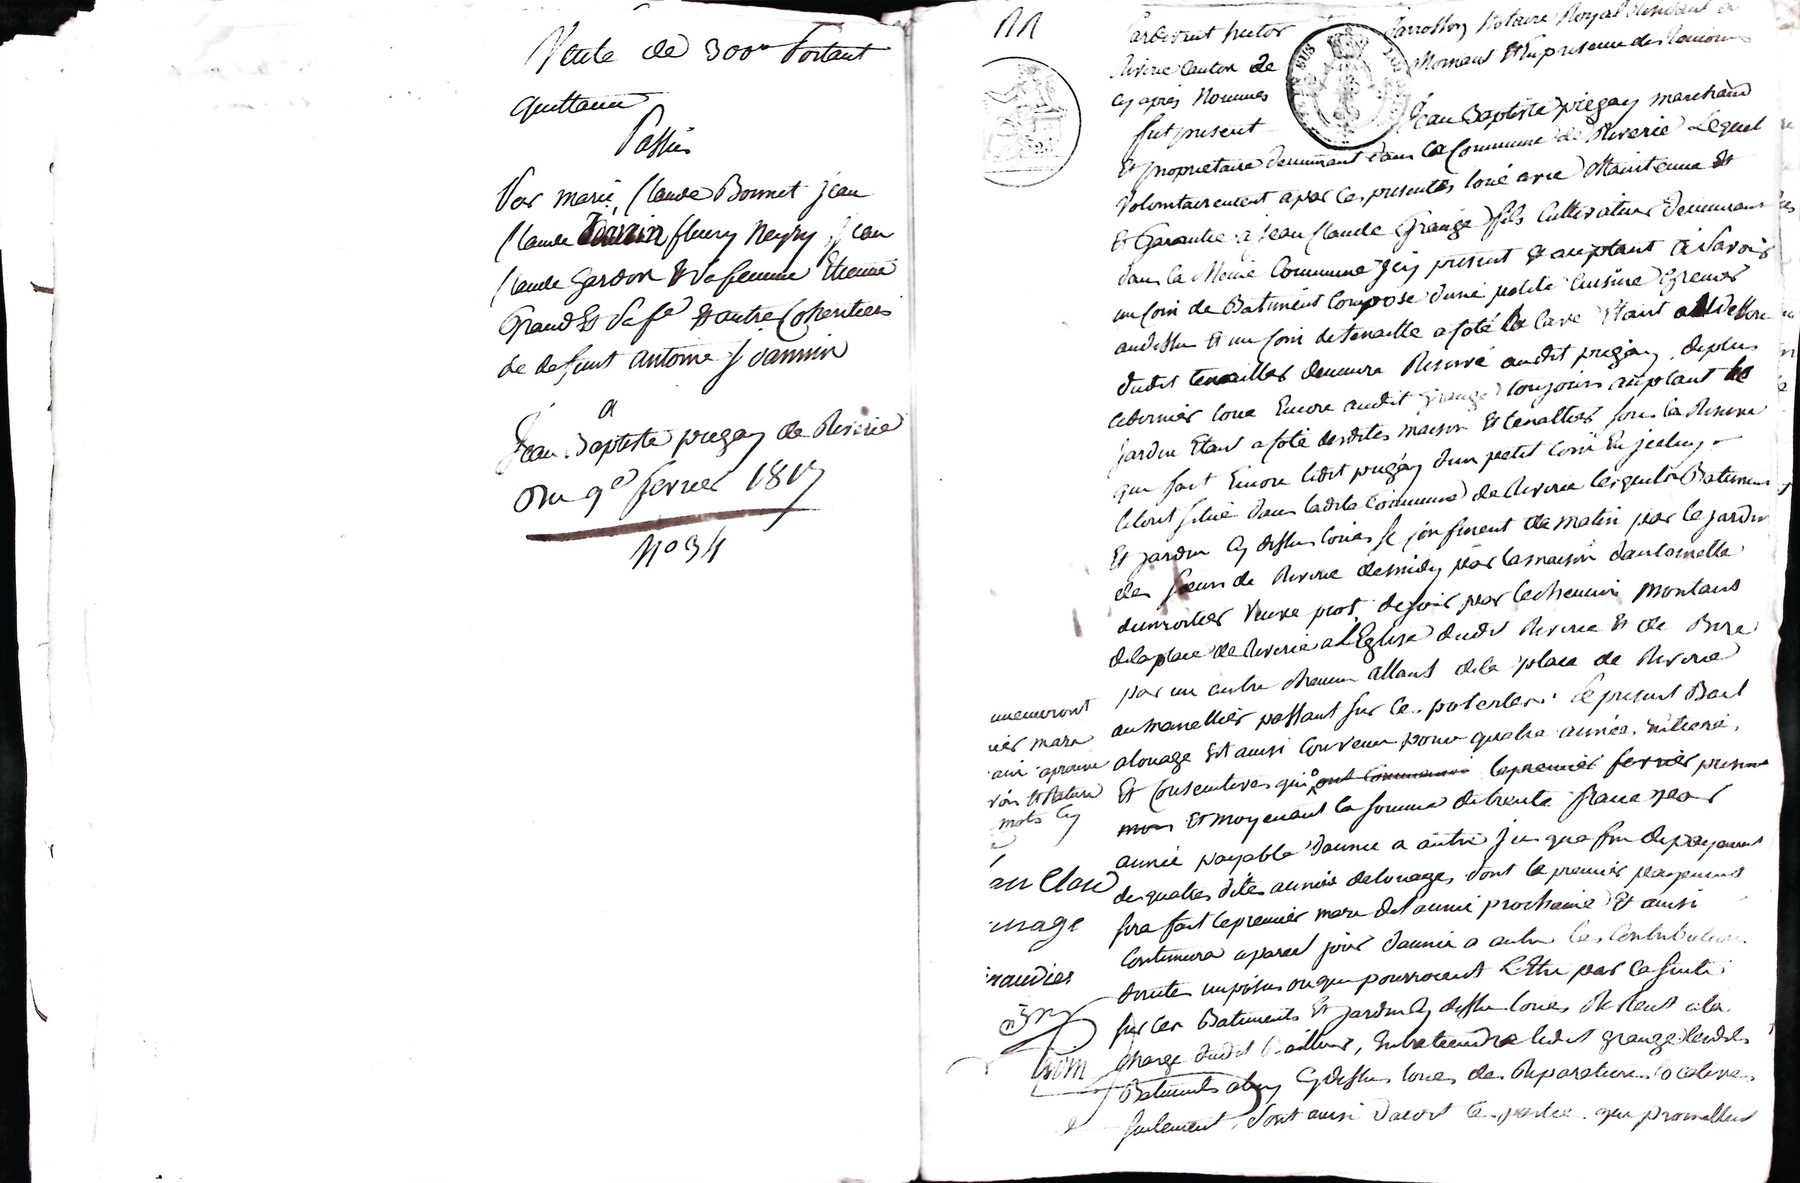 Vente de 300# Portant
quittance
Passée
Par marie Claude Bonnet jean
Claude fleury Neyry Jean
Claude Gardon et sa femme Etienne
Grand et sa fe et autre Coheritiers
de defunt antoine Joannin
a
Jean Baptiste pregay de Riverie
Du 9e fevrier 1817
N° 34
Pardevant hector
Riverie Canton de
cy après Nommés
fut present
notaire Royal Residant a
Mornant Et En presence des temoins
Jean Baptiste pregay marchand
Et proprietaire demeurant dans la Commune de Riverie Lequel
volontairement a par ces presentes loué avec Maintenue Et
Et Garantie a jean Claude Grange fils Cultivateur demeurant
dans la Meme Commune Icy present et aceptant a Savoir
un Coin de Batiment Composé d'une petite Cuisine Grenier
audessus Et un Coin de tenaille a Coté la Cave Etant au dessous
dudit tenaillier demeure Reservé audit pregay, deplus
cedernier loue Encore audit Grange toujours aceptant le
jardin Etant a Coté desdites maison Et tenallier sous la Reserve
que fait Encore ledit pregay d'un petit Coin En jceluy
letout situé dans ladite Commune de Riverie lesquels Batiments
Et jardin Cy dessus loués se Confinent de Matin par le jardin
des soeurs de Riverie de midy par la maison d'antoinette
dumortier Veuve piot, de soir par le chemin Montant
dela place de Riverie a l'Eglise dudit Riverie Et de Bize
par un autre chemin allant dela place de Riverie
passant sur les le present Bail
alouage Est ainsi Convenu pour quatre années, Entiere,
Et Consecutives qui ont Commencé le premier fevrier present
mois Et moyenant la somme de trente francs par
année payable d'année a autre jus qua fin de payement
des quatres dites années delouage, dont le premier payement
sera fait le premier mars de l'année prochaine Et ainsi
Continuera a pareil jour d'année a autre les Contributions
imposés ou qui pourroient L'Etre par la suite
sur les Batiments Et jardin Cy dessus loués Restent a la
charge dudit Bailleur, Entretiendra ledit grange lesdits
Batiments Cy dessus loués de Reparations locatives
seulement, sont ainsi d'acord les parties qui promettent
mots Cy